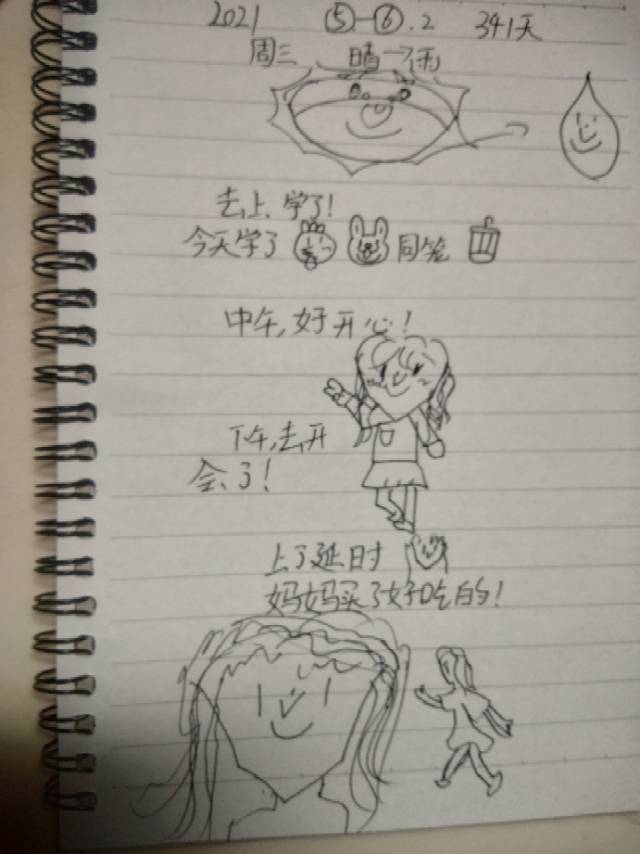 2021 ⑤—⑥.2 341天
周三 晴→雨
去上学了!
今天学了 同笼
中午,好开心!
下午,去开
会了!
上了延时
妈妈买了好吃的!